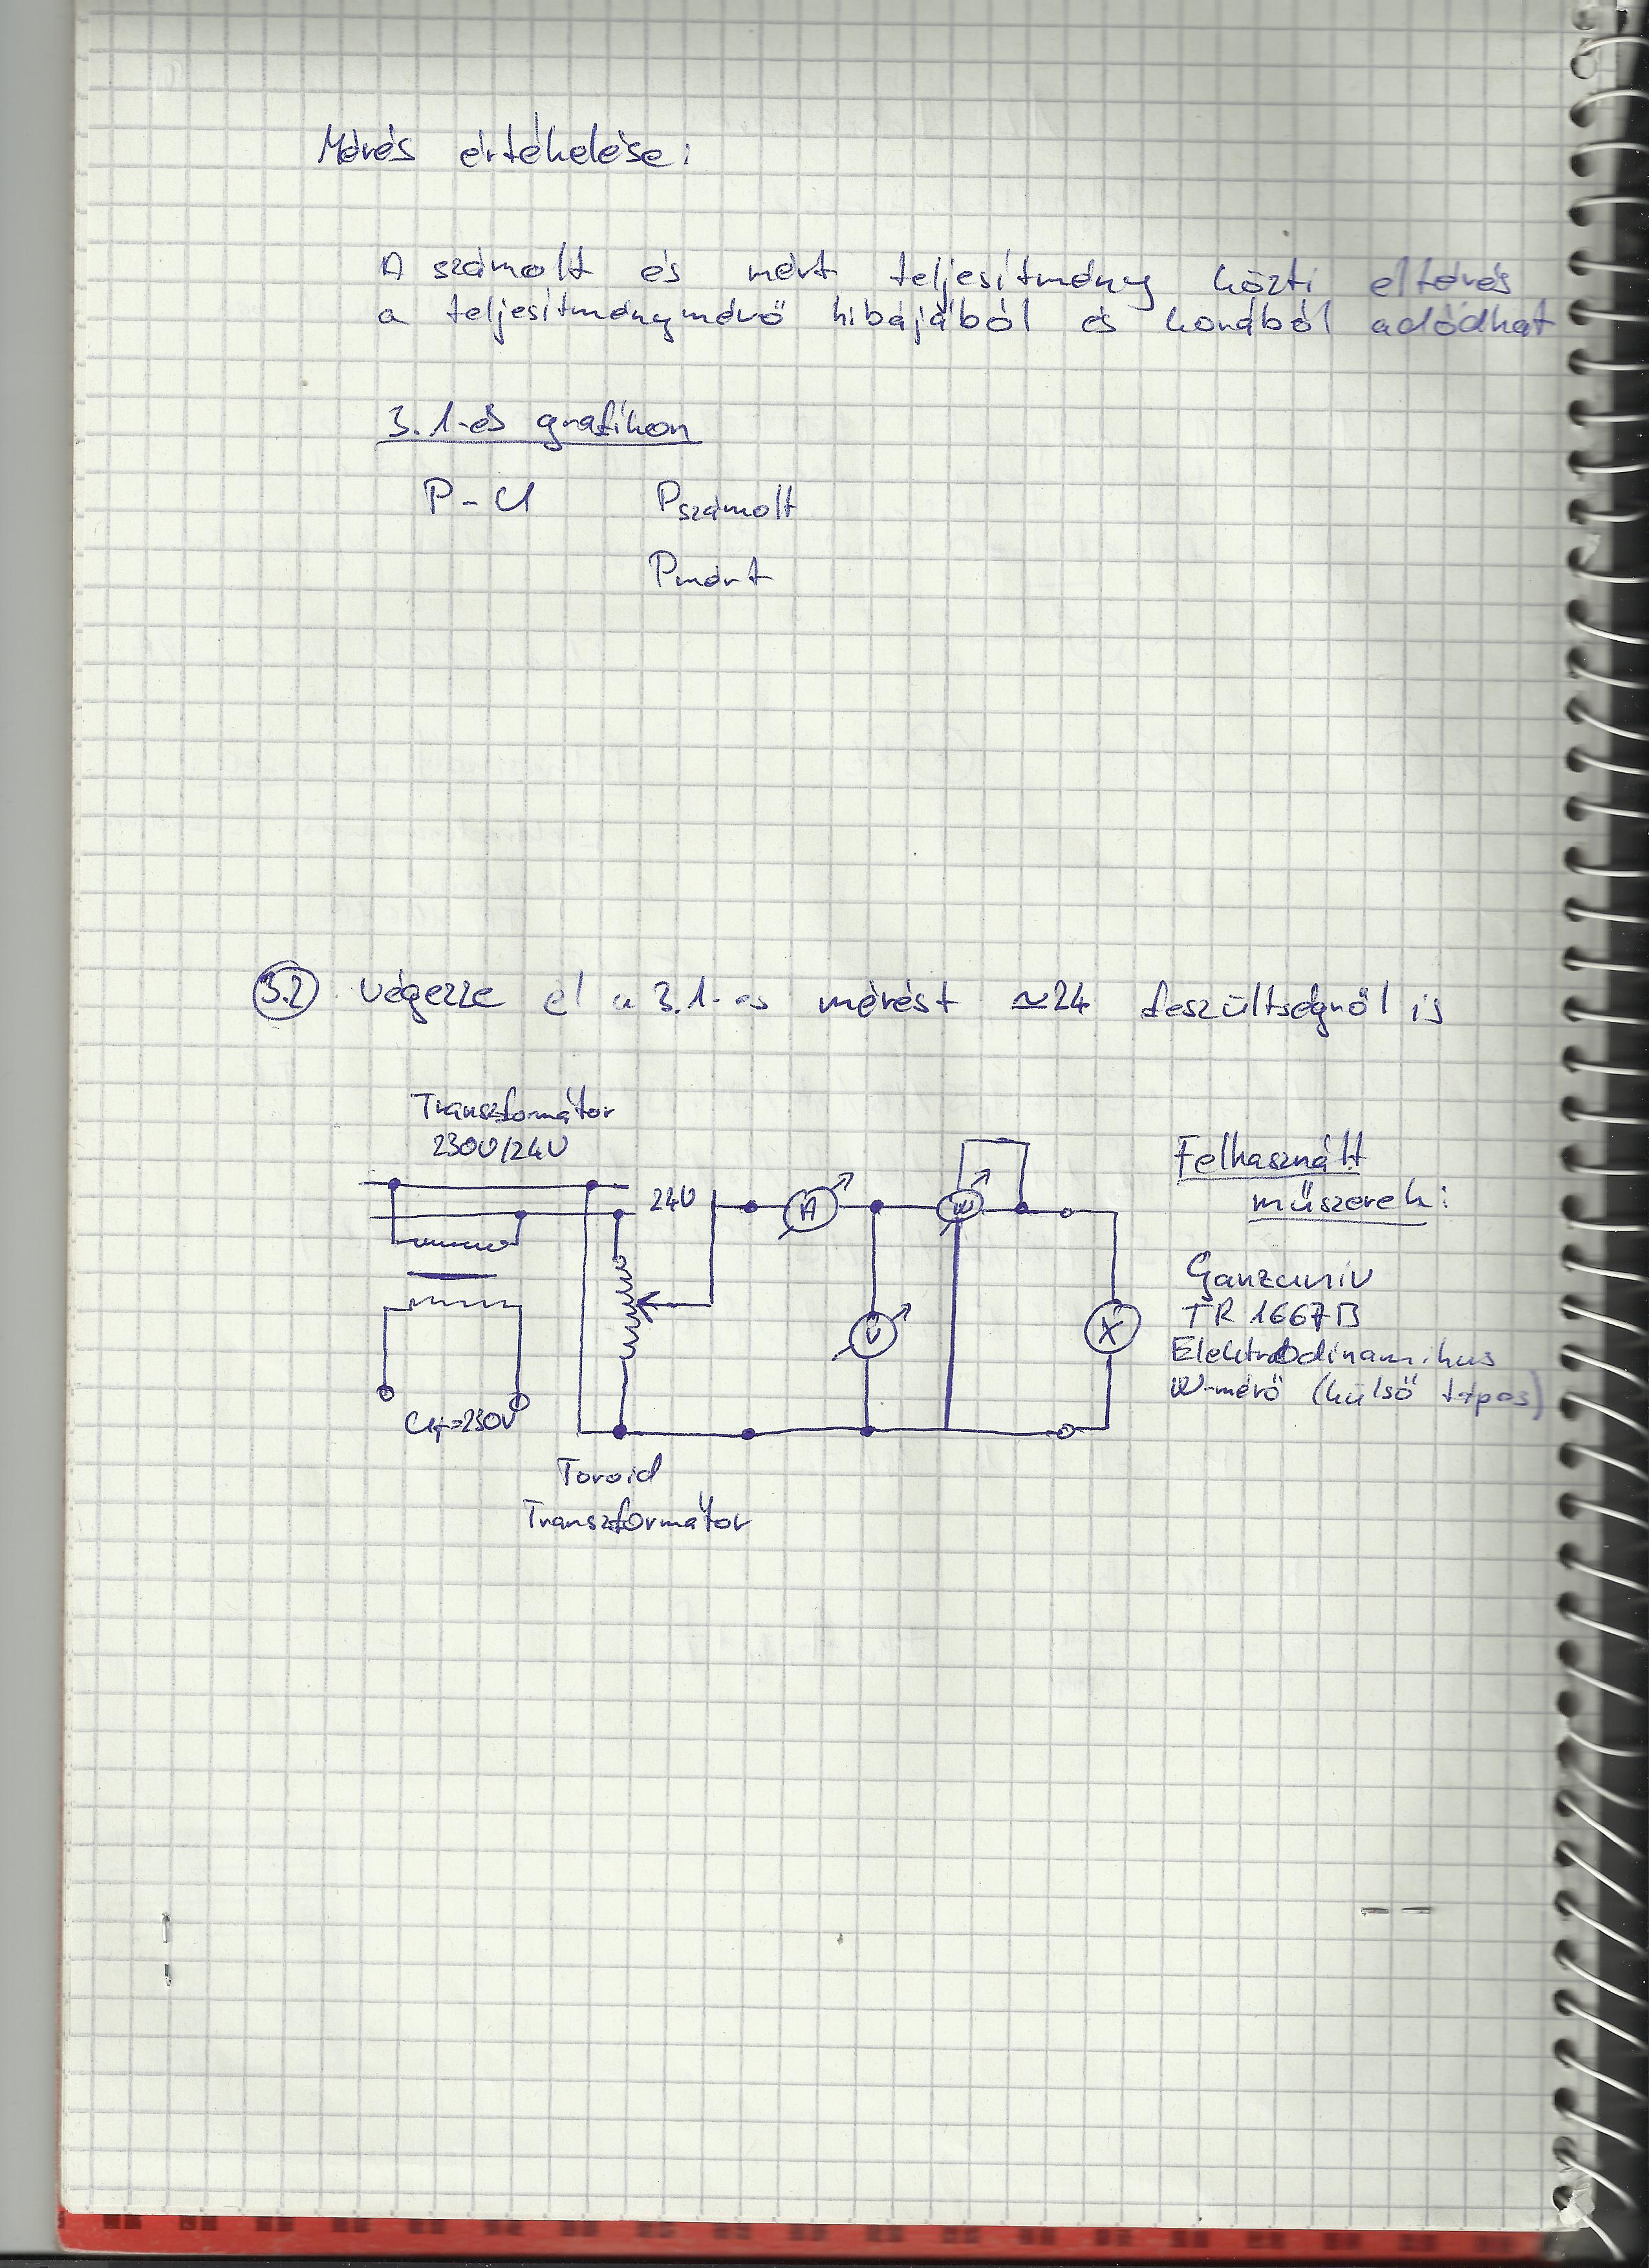 Mérés értékelése:
A számolt és mért teljesítmény közti eltérés
a teljesítménymérő hibájából és korából adódhat
3.1-es grafikon
P-U Pszámolt
Pmért
3.2 Végezze el a 3.1-es mérést ≃24 feszültségnél is
Transzformátor
230V/24V
24V
A
W
V
X
U1f=230V
Toroid
Transzformátor
Felhasznált
műszerek:
Ganzuniv
TR 1667B
Elektrodinamikus
W-mérő (külső tápos)